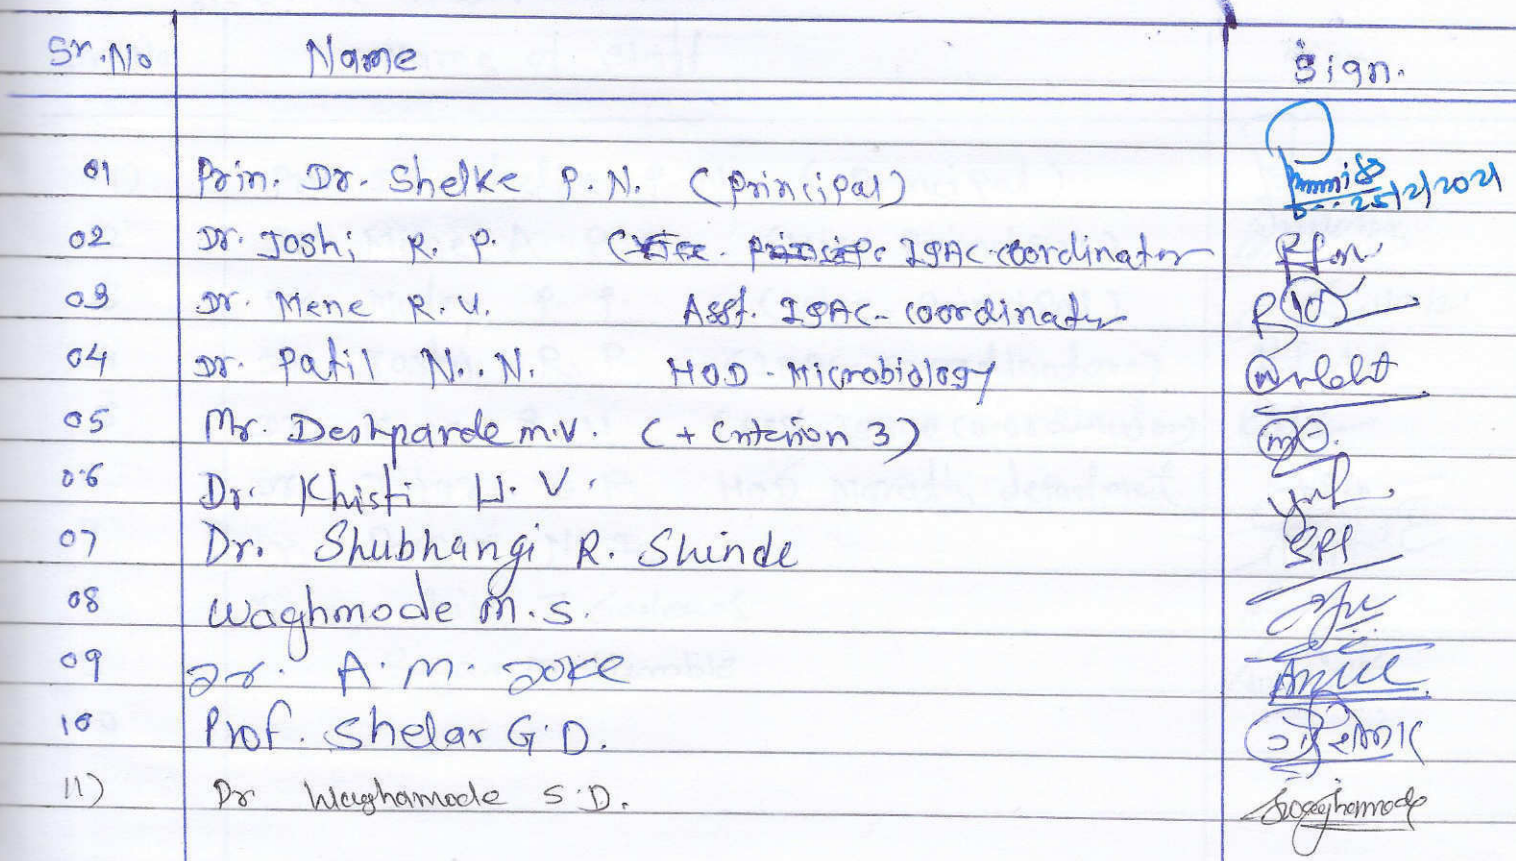 Sr.No Name Sign.
01 Prin. Dr. Shelke P.N. (Principal) 25/2/2021
02 Dr. Joshi R. P. IQAC-coordinator
03 Dr. Mene R.U. Asst. IQAC-coordinator
04 Dr. Patil N..N. HOD-Microbiology
05 Mr. Deshpande M.V. (+ Criterion 3)
06 Dr. Khisti U. V.
07 Dr. Shubhangi R. Shinde SRS
08 Waghmode M.S.
09 Dr. A.M. Joke
10 Prof. Shelar G.D.
11) Dr Waghamode S.D. Waghamode